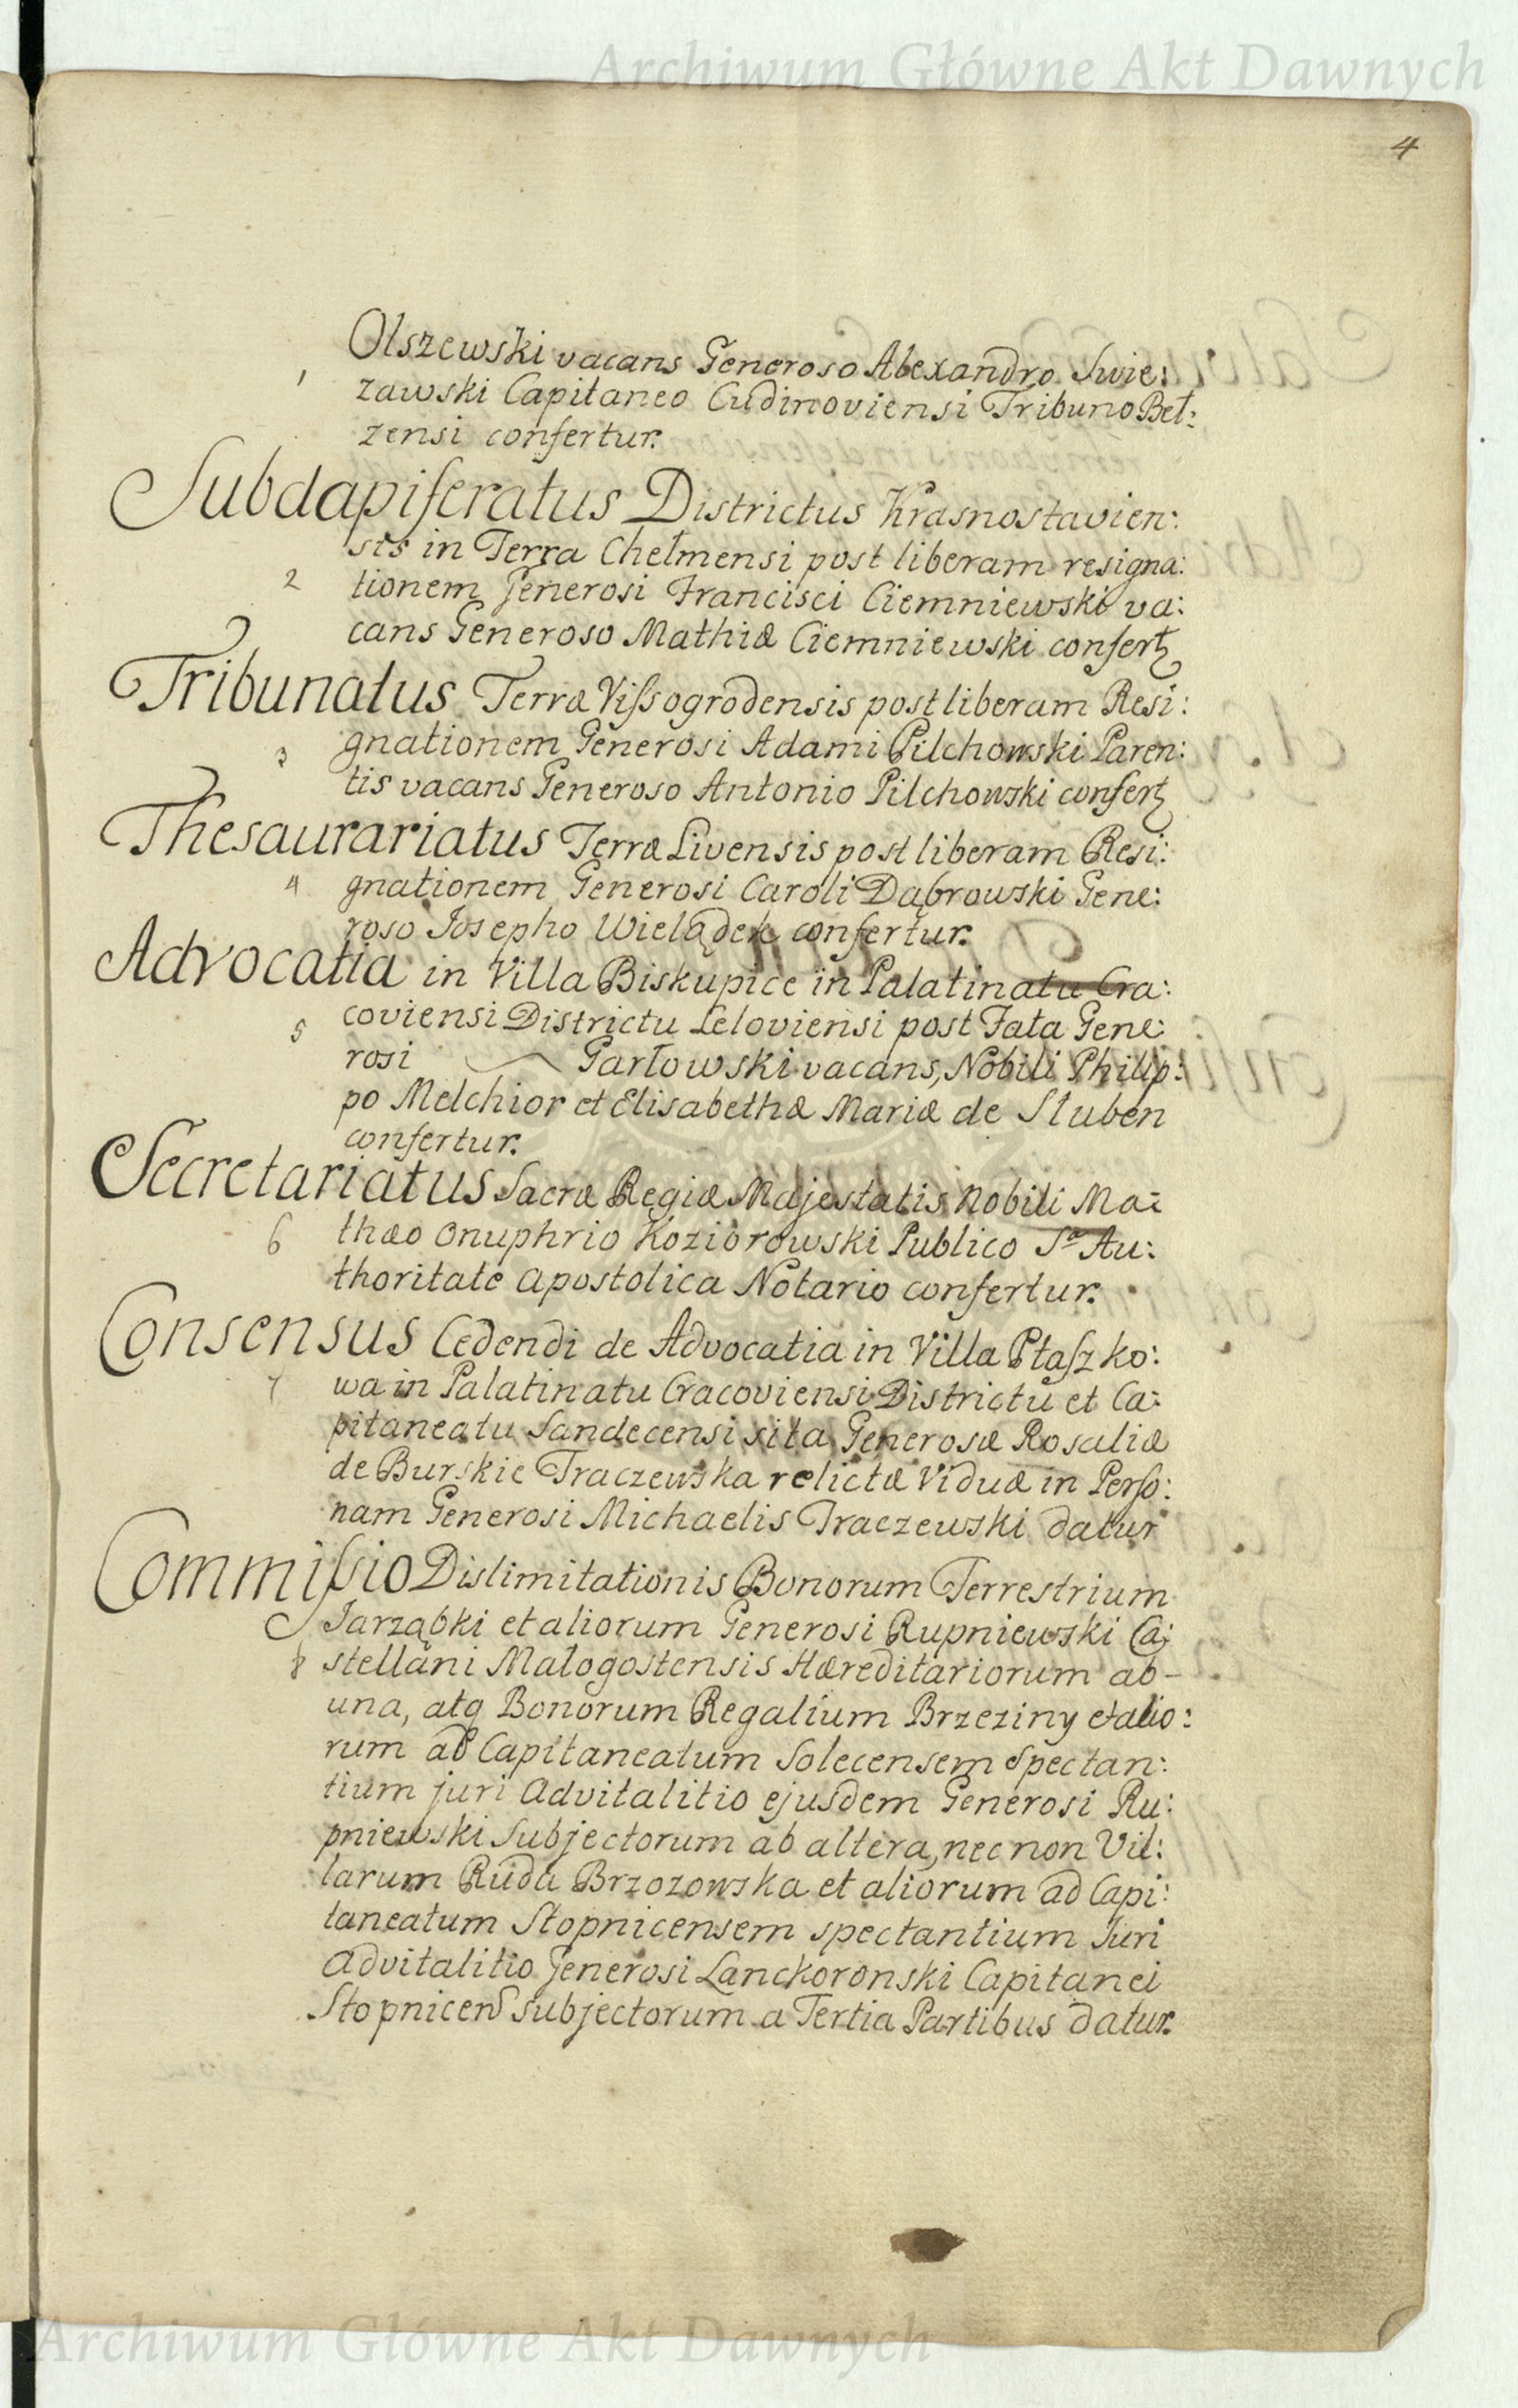 Archiwum Główne Akt Dawnych
4
Olszewski vacans Generoso Alexandro Swie:
1 zawski Capitaneo Cudinoviensi Tribuno Beł:
zensi confertur.
Subdapiferatus Districtus Krasnostavien:
sis in Terra Chełmensi post liberam resigna:
2 tionem Generosi Francisci Ciemniewski va:
cans Generoso Mathiæ Ciemniewski confert
Tribunatus Terræ Vissogrodensis post liberam Resi:
3 gnationem Generosi Adami Pilchowski Paren:
tis vacans Generoso Antonio Pilchowski confert
Thesaurariatus Terræ Livensis post liberam Resi:
4 gnationem Generosi Caroli Dąbrowski Gene:
roso Josepho Wielądek confertur.
Advocatia in Villa Biskupice in Palatinatu Cra:
5 coviensi Districtu Leloviensi post Fata Gene:
rosi Garłowski vacans, Nobili Philip:
po Melchior et Elisabethæ Mariæ de Stuben
confertur.
Secretariatus Sacræ Regiæ Majestatis Nobili Ma:
6 thæo Onuphrio Koziorowski Publico Sa Au:
thoritate Apostolica Notario confertur.
Consensus Cedendi de Advocatia in Villa Ptaszko:
7 wa in Palatinatu Cracoviensi Districtu et Ca:
pitaneatu Sandecensi sita Generosæ Rosaliæ
de Burskie Traczewska relictæ Viduæ in Perso:
nam Generosi Michaelis Traczewski datur
Commissio Dislimitationis Bonorum Terrestrium
Jarząbki et aliorum Generosi Rupniewski Ca:
8 stellani Małogostensis Hæreditariorum ab-
una, atq Bonorum Regalium Brzeziny et alio:
rum ad Capitaneatum Solecensem Spectan:
tium juri Advitalitio ejusdem Generosi Ru:
pniewski Subjectorum ab altera, nec non Vil:
larum Ruda Brzozowska et aliorum ad Capi:
taneatum Stopnicensem spectantium Juri
Advitalitio Generosi Lanckoronski Capitanei
Stopnicens Subjectorum a Tertia Partibus datur.
Archiwum Główne Akt Dawnych